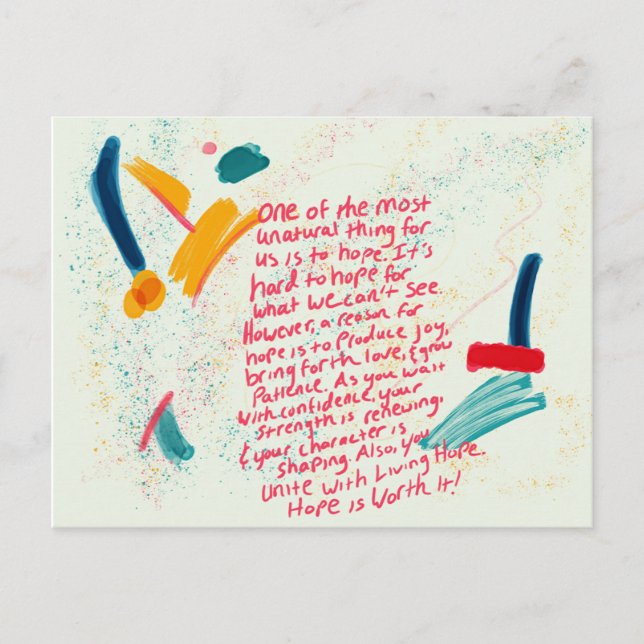 One of the most
unatural thing for
us is to hope. It's
hard to hope for
what we can't see.
However, a reason for
hope is to Produce joy,
bring forth love, & grow
Patience. As you wait
with confidence, your
strength is renewing,
& your character is
shaping. Also, you
unite with Living Hope.
Hope is Worth It!